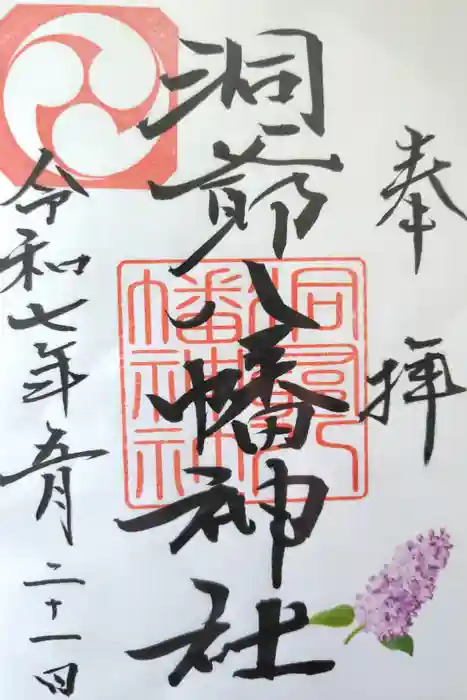 奉拝
洞爺八幡神社
令和七年五月二十一日
洞爺八
幡神社